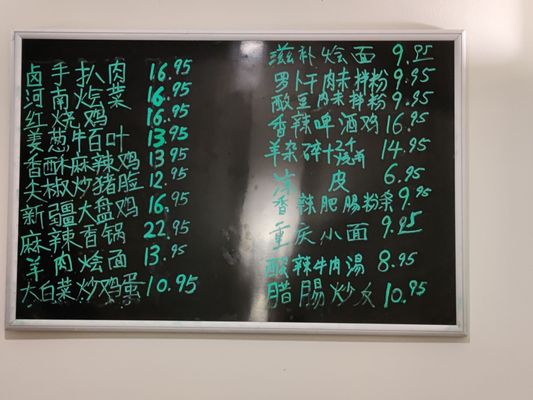 卤手扒肉 16.95
河南烩菜 16.95
红烧鸡 16.95
姜葱牛百叶 13.95
香酥麻辣鸡 13.95
尖椒炒猪脸 12.95
新疆大盘鸡 16.95
麻辣香锅 22.95
羊肉烩面 13.95
大白菜炒鸡蛋 10.95
滋补烩面 9.95
罗卜干肉末拌粉 9.95
酸豆肉末拌粉 9.95
香辣啤酒鸡 16.95
羊杂碎+2个 14.95
凉皮 6.95
香辣肥腸粉条 9.95
重庆小面 9.95
酸辣牛肉湯 8.95
腊腸炒 10.95